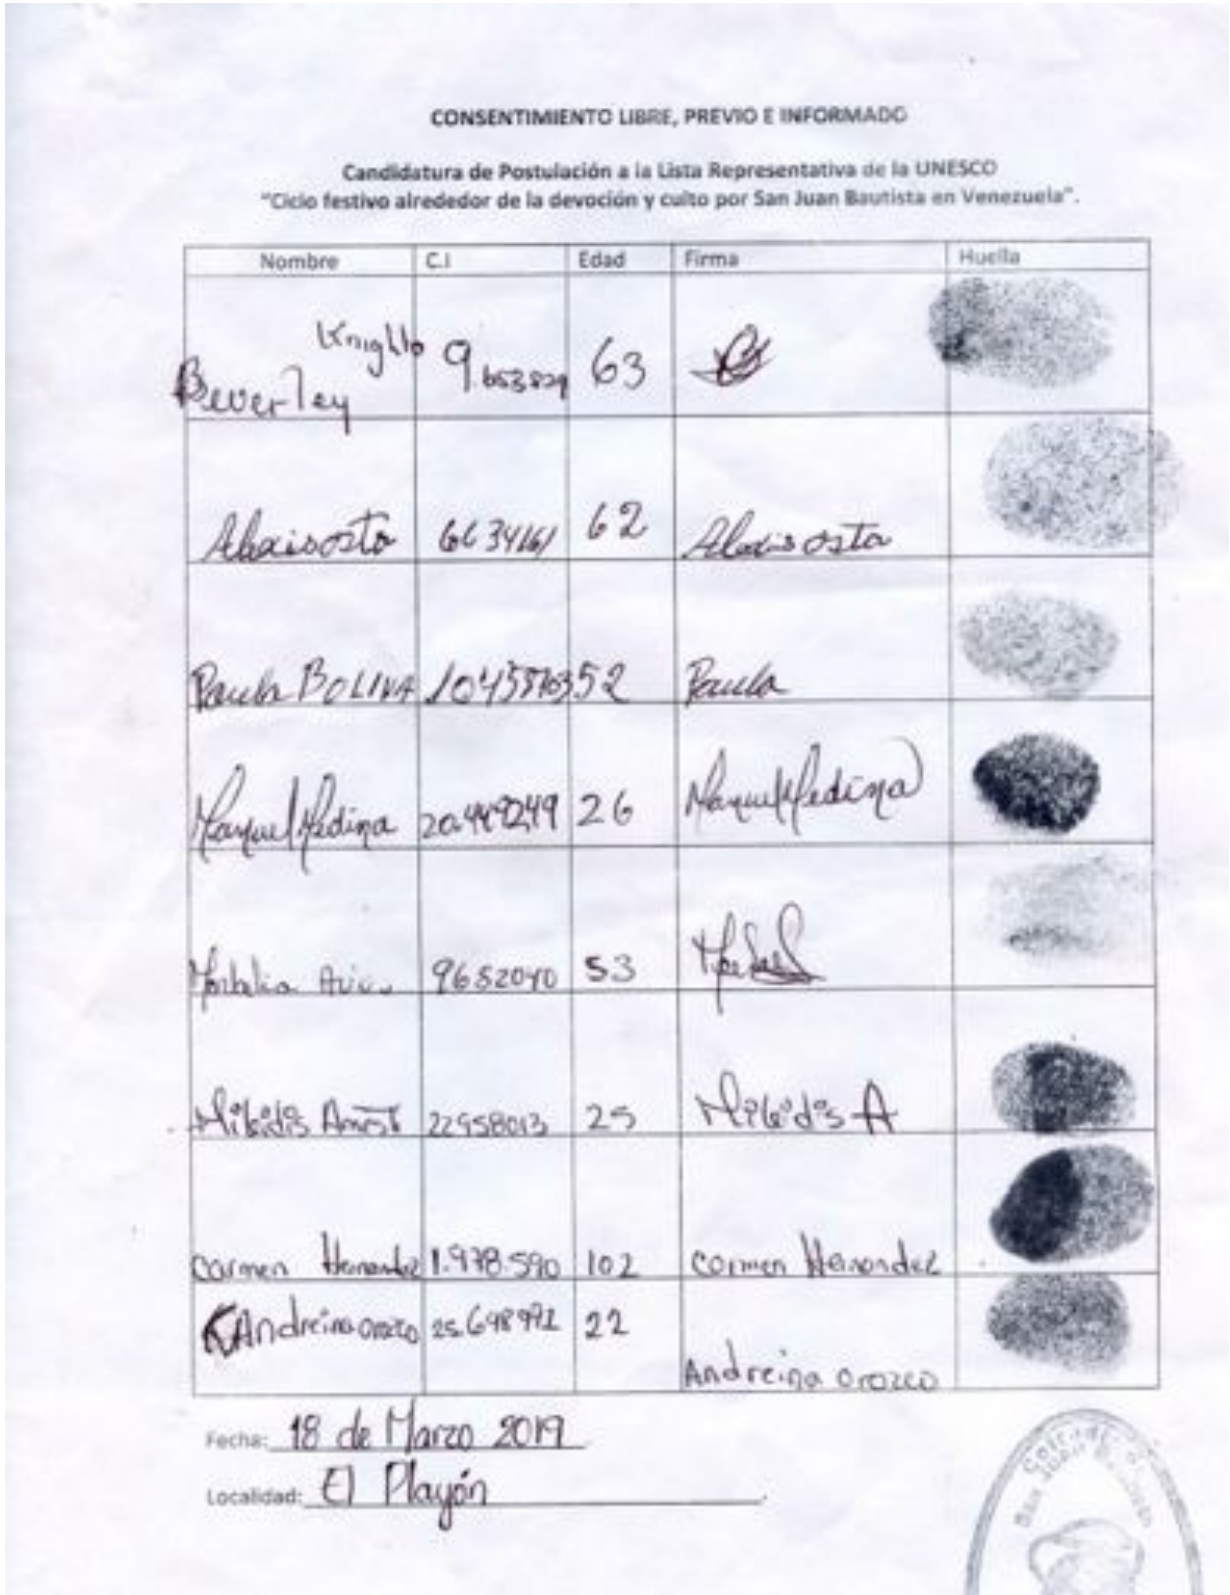 CONSENTIMIENTO LIBRE, PREVIO E INFORMADO
Candidatura de Postulación a la Lista Representativa de la UNESCO
"Ciclo festivo alrededor de la devoción y culto por San Juan Bautista en Venezuela".
Nombre C.I Edad Firma Huella
Beverley 9.653829 63
62
Paula BOLIVA 52 Paula
Manuel Medina 20.449249 26 Manuel Medina
9652040 53
22958013 25 A
Carmen Hernandez 1.978.590 102 Carmen Hernandez
Andreina Orozco 25.698992 22 Andreina Orozco
Fecha: 18 de Marzo 2019
Localidad: El Playón
San Juan